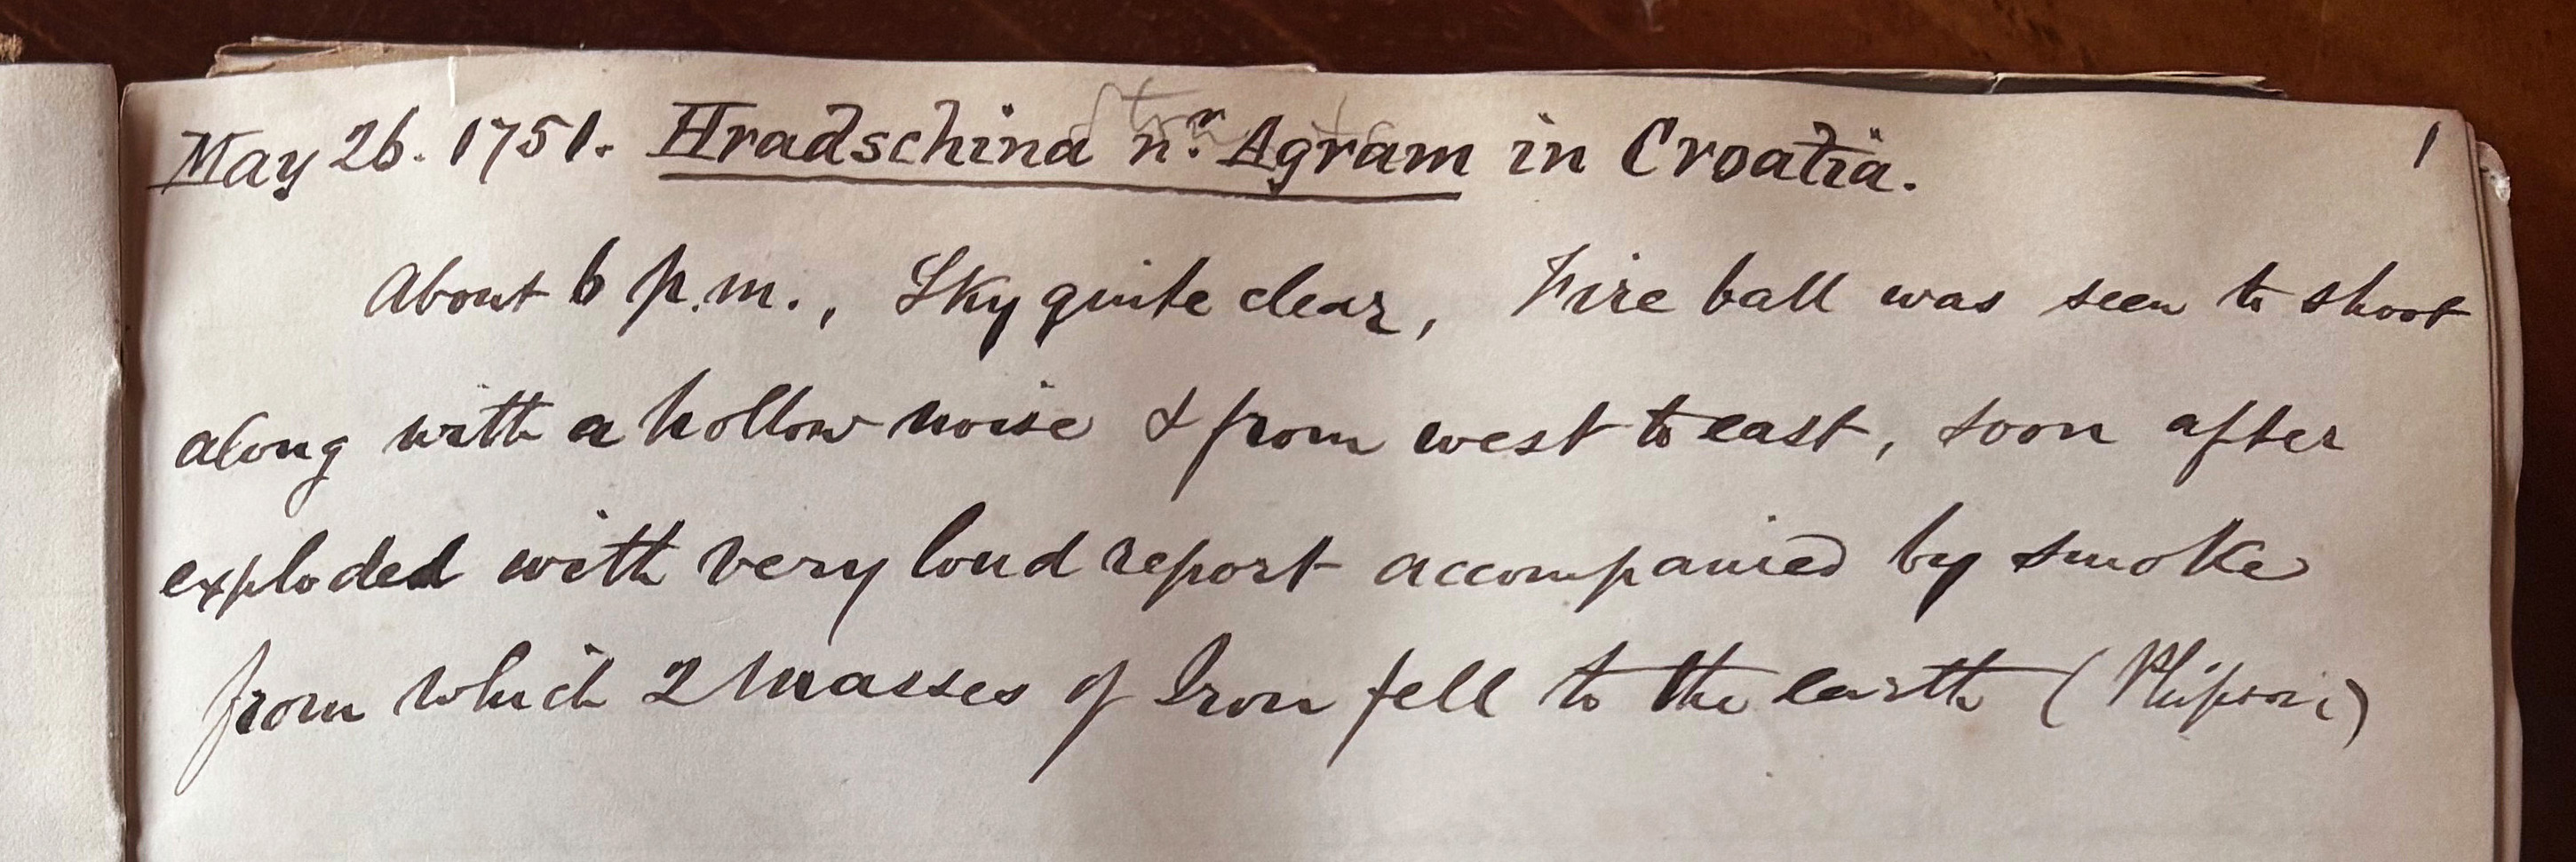 May 26. 1751. Hradschina nr. Agram in Croatia. 1
About 6 p.m., Sky quite clear, Fire ball was seen to shoot
along with a hollow noise & from west to east, soon after
exploded with very loud report accompanied by smoke
from which 2 Masses of Iron fell to the earth (Phipson)